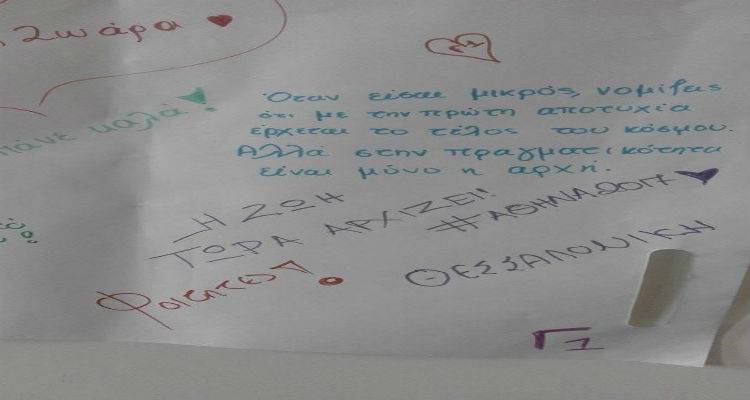 Ζωάρα
πάνε καλά!
Όταν είσαι μικρός, νομίζεις
ότι με την πρώτη αποτυχία
έρχεται το τέλος του κόσμου.
Αλλά στην πραγματικότητα
είναι μόνο η αρχή.
Η ΖΩΗ
ΤΩΡΑ ΑΡΧΙΖΕΙ!!
#ΑΘΗΝΑ2017
Φοιτητές!
ΘΕΣΣΑΛΟΝΙΚΗ
Γ1